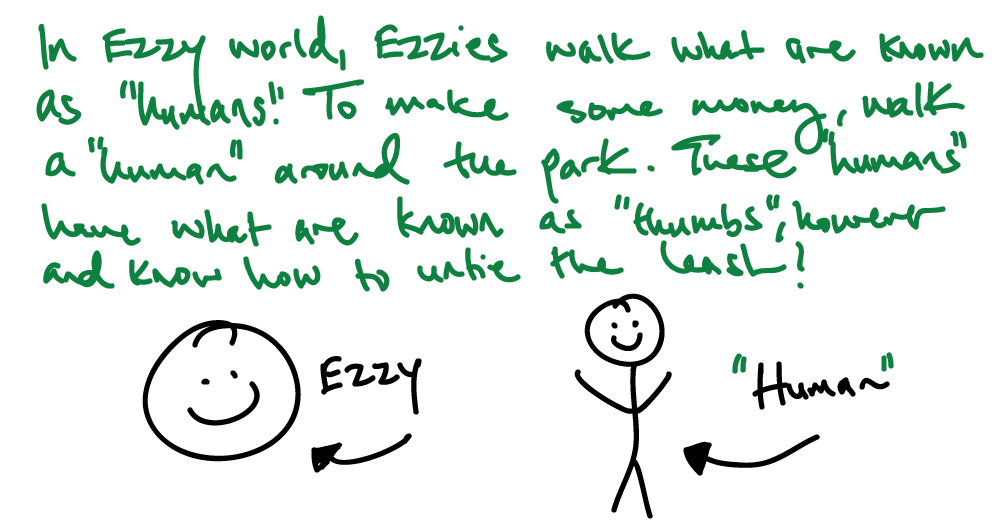 In Ezzy world, Ezzies walk what are known
as "humans!" To make some money, walk
a "human" around the park. These "humans"
have what are known as "thumbs", however
and know how to untie the leash!
Ezzy
"Human"